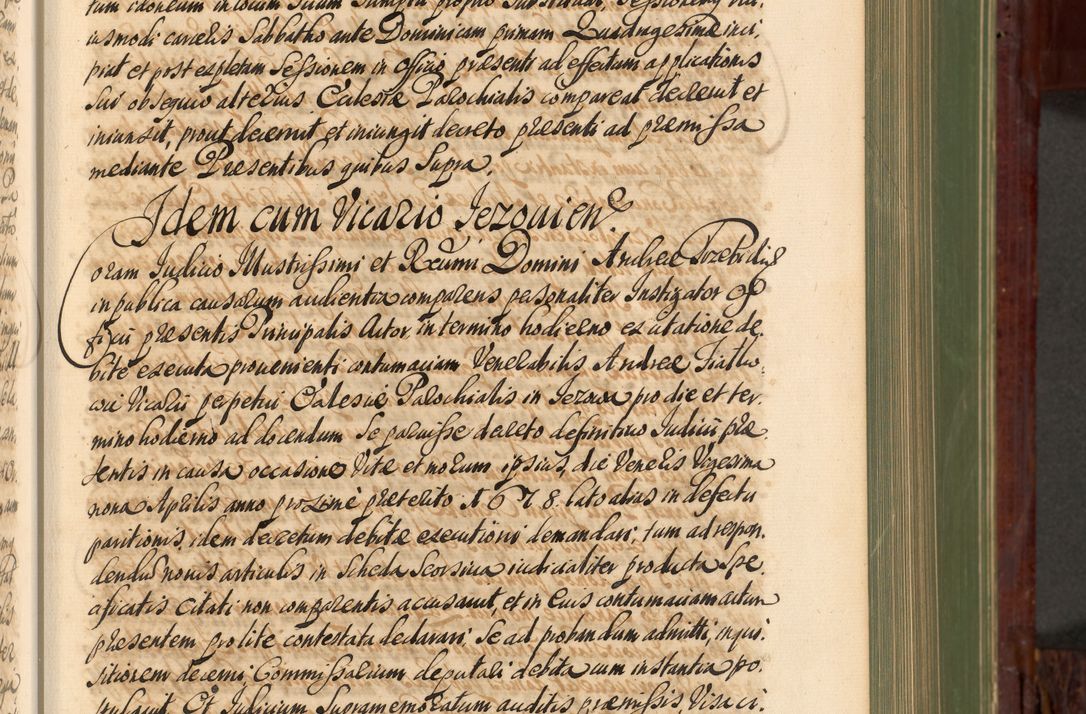 tum idoneum in locum suum sumptu proprio substituat, sessionemq
iusmodi carceris Sabbatho ante Dominicam primam Quadragesimae inci,
piat et post expletam sessionem in officio praesenti ad effectum applicationis
sui obsequio alterius Ecclesiae Parochialis compareat decrevit et
iniunxit, prout decernit et iniungit decreto praesenti ad praemissa
mediante Praesentibus quibus supra.
Idem cum Vicario Jezoviens
Coram Judicio Illustrissimi et Rndmi Domini Andreae Trzebicki
in publica causarum audientia comparens personaliter Instigator Of
ficii praesentis Principalis Actor, in termino hodierno ex citatione de,
bite executa provenienti contumaciam Venerabilis Andreae
Vicarii perpetui Ecclesiae Parochialis in Jezowa pro die et ter,
mino hodierno ad docendum se paruisse decreto definitivo Judicii prae,
sentis in causa occasione Vitae et morum ipsius, die Veneris Vigesima
nona Aprilis anno proxime praeterito 1678. lato alias in defectu
paritionis, idem decretum debitae executioni demandari; tum ad respon,
dendum novis articulis in Scheda Seorsiva iudicialiter producta spe,
cificatis citati non comparentis accusavit, et in eius contumaciam actum
praesentem pro lite contestata declarari, se ad probandum admitti, inqui,
sitiorem decerni, Commissarium deputari debita cum instantia po,
stulavit. Et Judicium supramemoratum auditis praemissis, Visa ci,